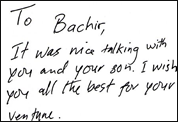 To Bachir,
It was nice talking with
you and your son. I wish
you all the best for your
venture.